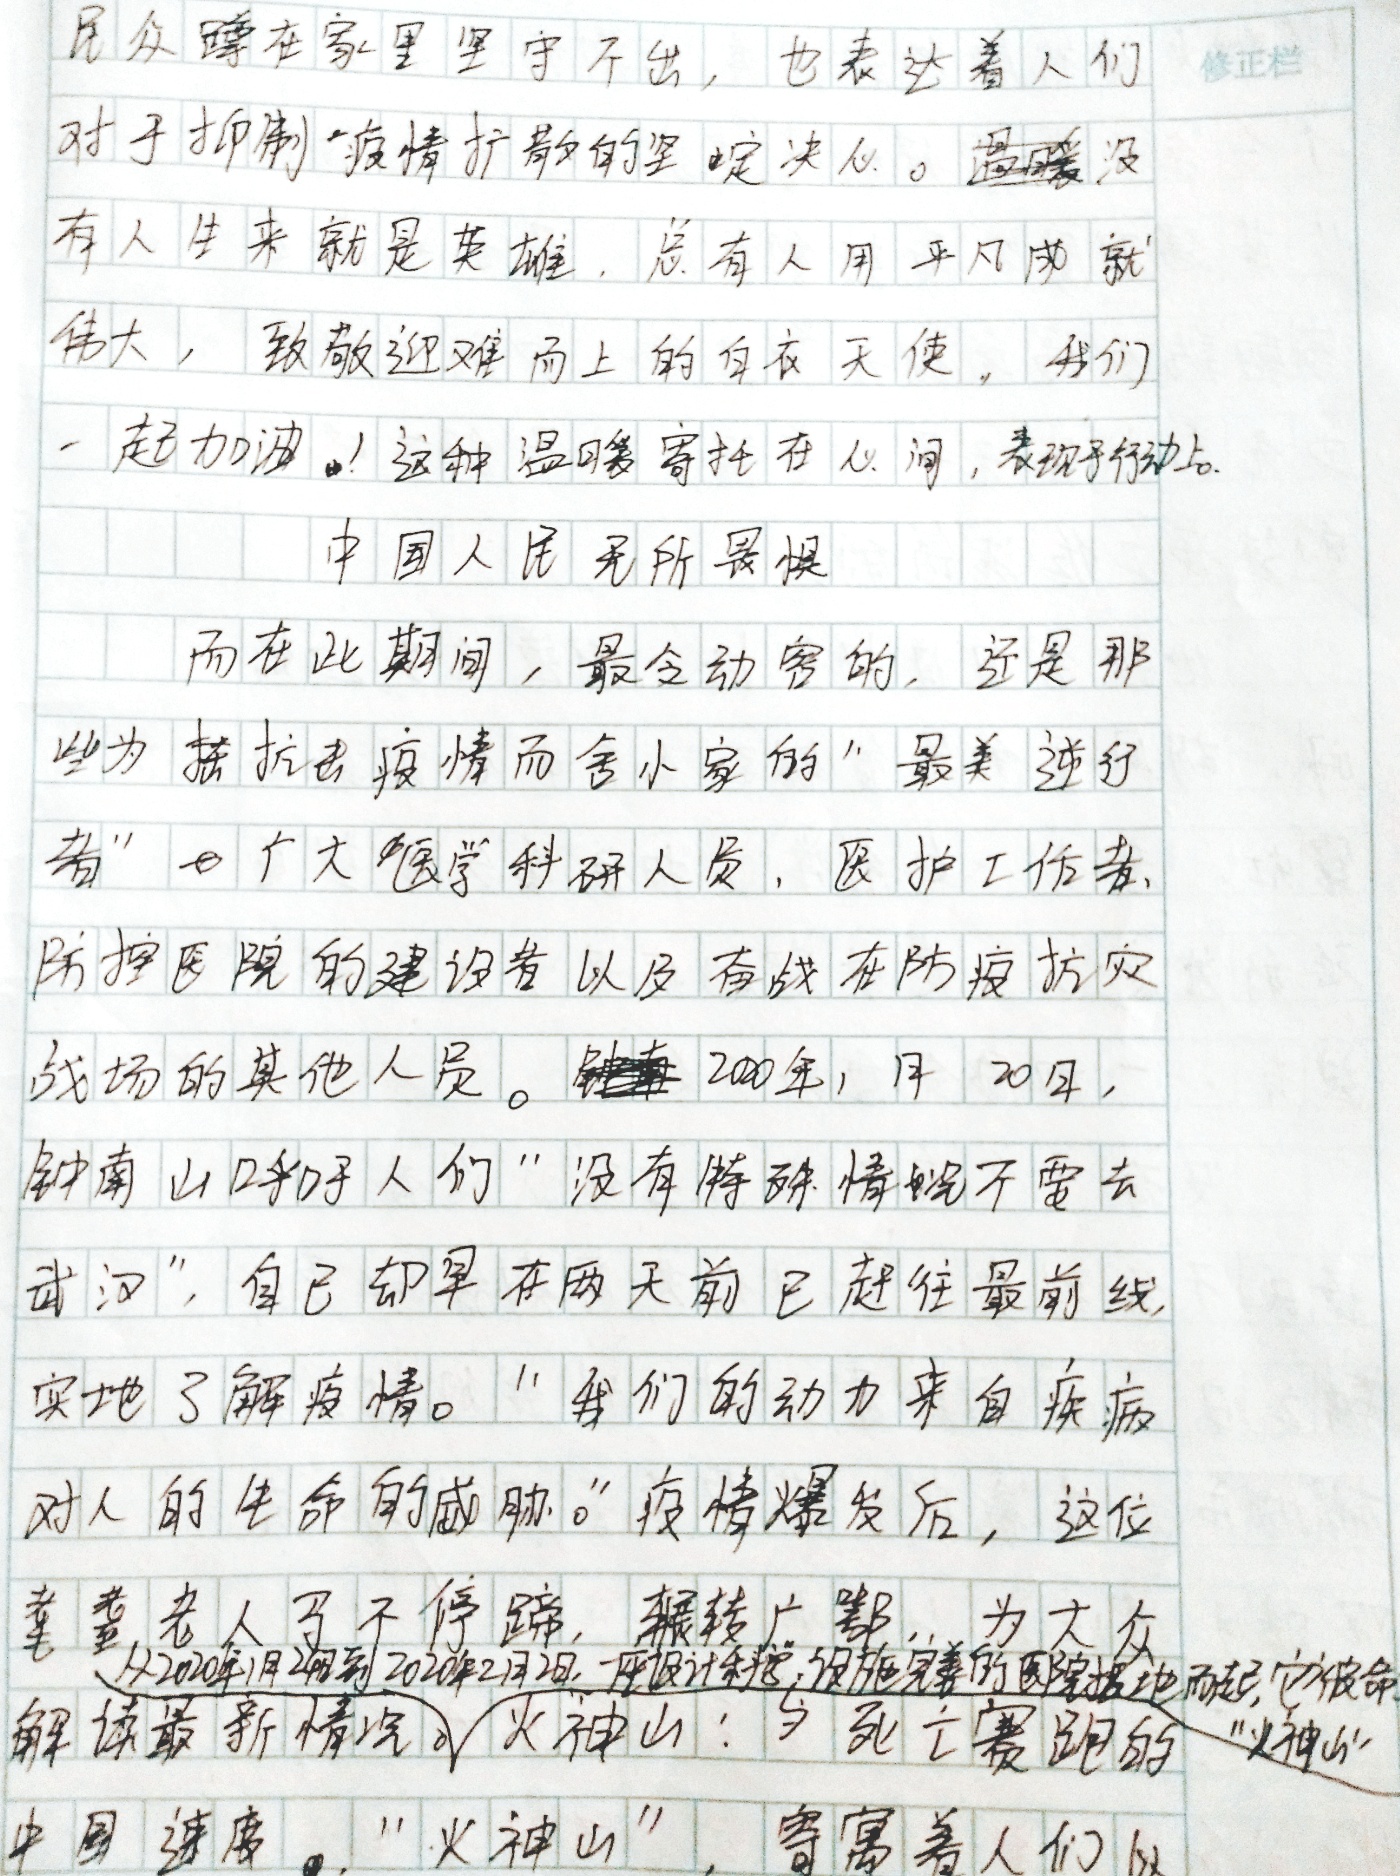 修正栏
民众蹲在家里坚守不出，也表达着人们
对于抑制疫情扩散的坚定决心。温暖没
有人生来就是英雄，总有人用平凡成就
伟大，致敬迎难而上的白衣天使。我们
一起加油！这种温暖寄托在心间，表现于行动上。
中国人民无所畏惧
而在此期间，最令动容的，还是那
些为抗击疫情而舍小家的"最美逆行
者"广大医学科研人员，医护工作者、
防控医院的建设者以及奋战在防疫抗灾
战场的其他人员。2020年1月20日，
钟南山呼吁人们"没有特殊情况不要去
武汉"，自己却早在两天前已赶往最前线，
实地了解疫情。"我们的动力来自疾病
对人的生命的威胁。"疫情爆发后，这位
耄耋老人马不停蹄，辗转广鄂，为大众
解读最新情况。
从2020年1月24日到2020年2月2日，一座设计科学，设施完善的医院拔地而起，它被命
"火神山"
火神山：与死亡赛跑的
中国速度。"火神山"，寄寓着人们以